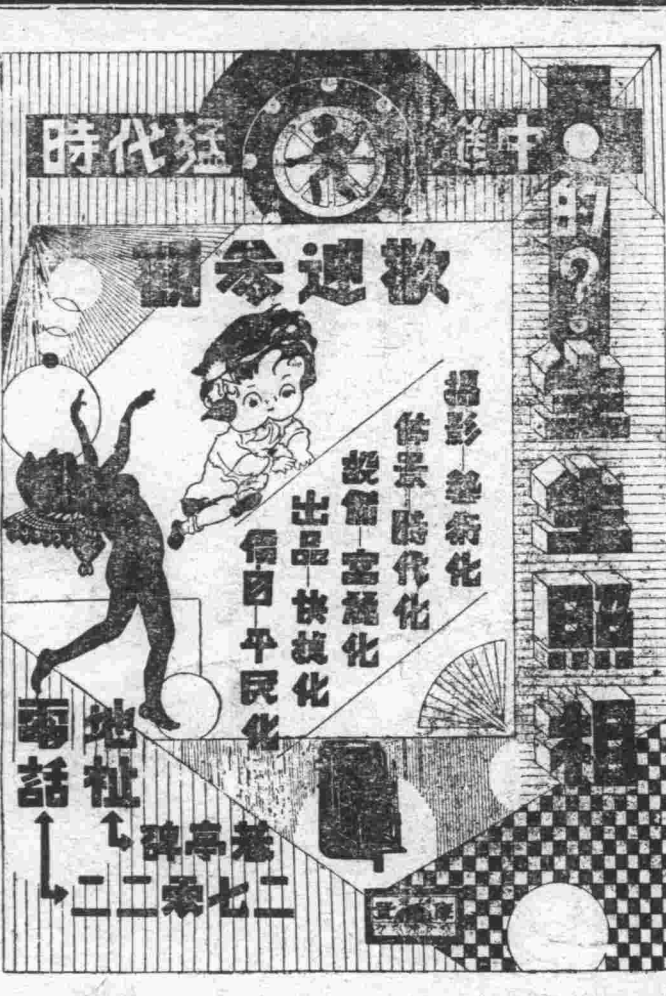 時代猛進中的?
照相
歡迎參觀
攝影—藝術化
佈景—時代化
設備—富麗化
出品—快捷化
價目—平民化
地址
碑亭巷
電話
二二零七二